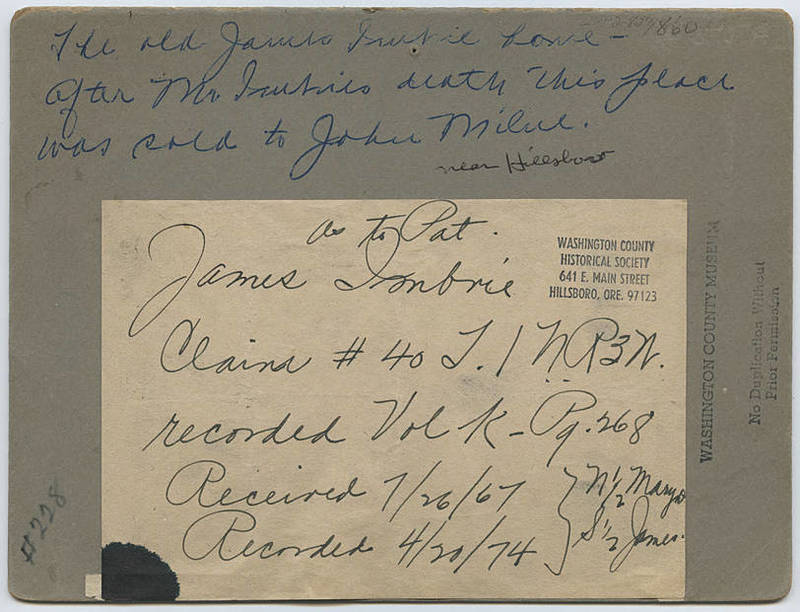 The old James Imbrie home -
After Mr Imbries death this place
was sold to John Milne.
near Hillsboro
as to Pat.
James Imbrie
WASHINGTON COUNTY
HISTORICAL SOCIETY
641 E. MAIN STREET
HILLSBORO, ORE. 97123
Claim # 40 T. 1 N R3W.
recorded Vol K - Pg. 268
Received 7/26/67
Recorded 4/20/74
N 1/2 Mary
S 1/2 James.
WASHINGTON COUNTY MUSEUM
No Duplication Without
Prior Permission
#228